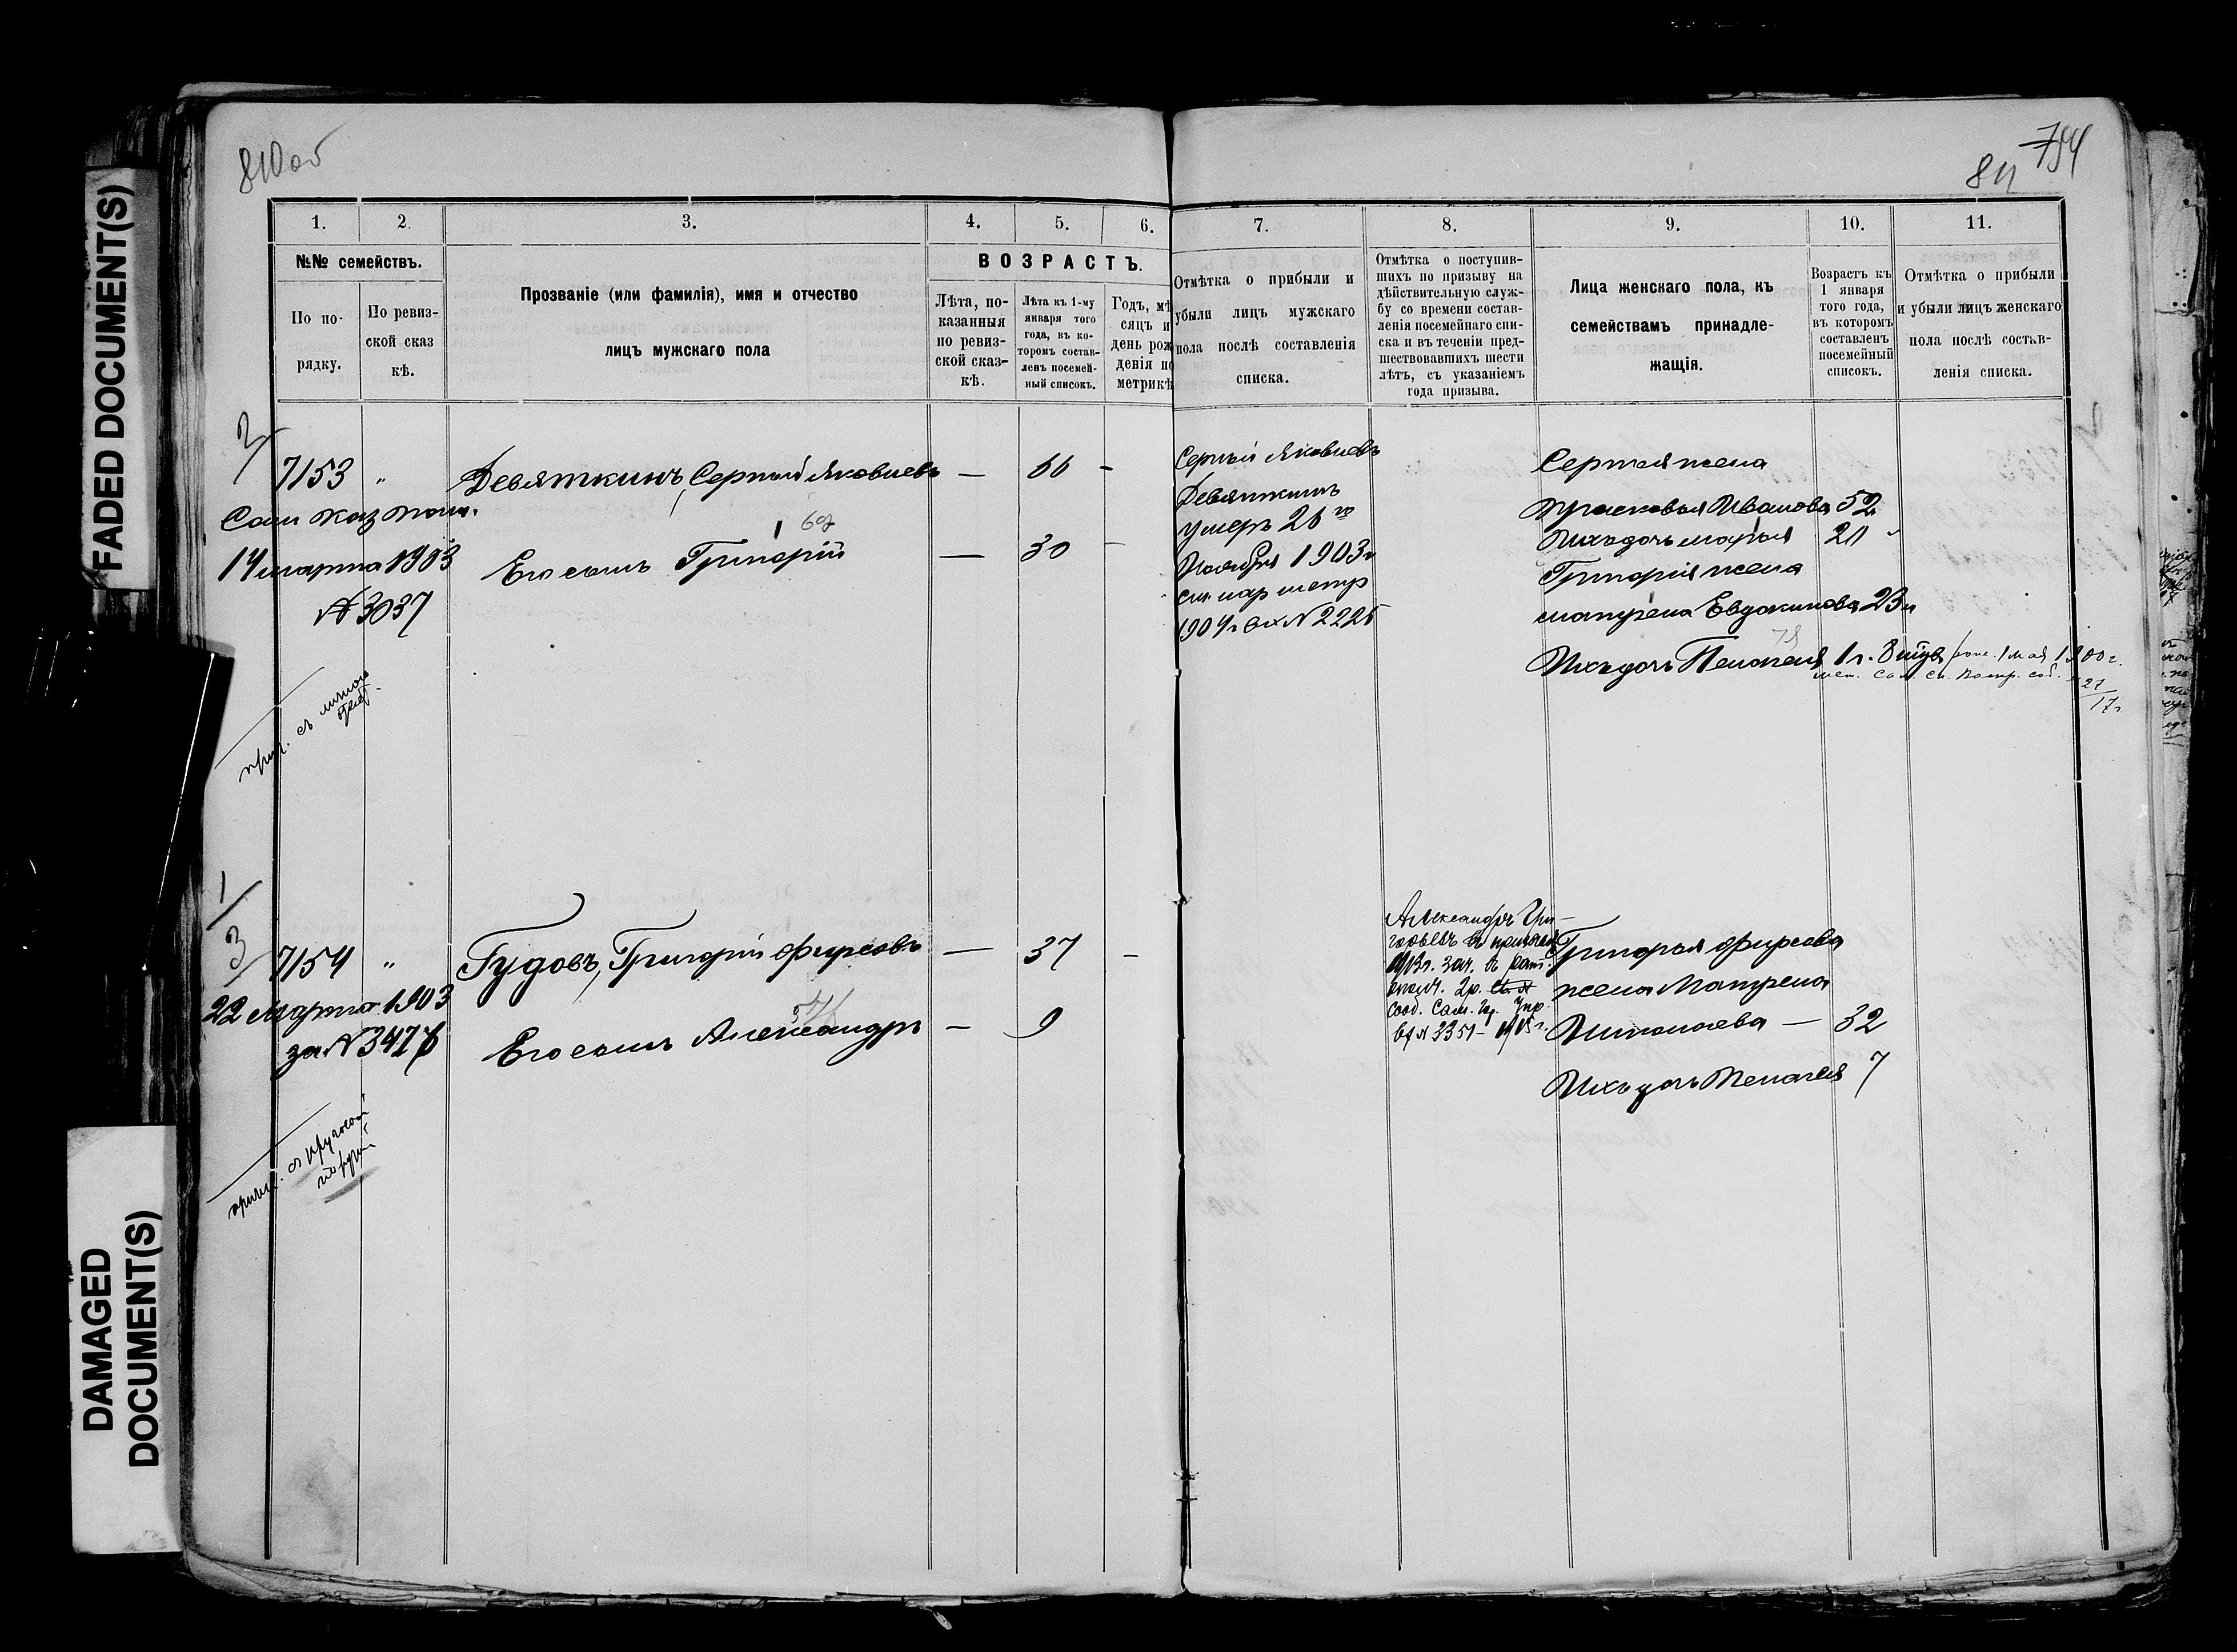 FADED DOCUMENT(S)
DAMAGED
DOCUMENT(S)
810об
794
811
1.
2.
3.
4.
5.
6.
7.
8.
9.
10.
11.
№№ семействъ.
По по-
рядку.
По ревиз-
ской сказ
кѣ.
Прозваніе (или фамилія), имя и отчество
лицъ мужскаго пола
ВОЗРАСТЪ.
Лѣта, по-
казанныя
по ревиз-
ской сказ-
кѣ.
Лѣта къ 1-му
января того
года, въ ко-
торомъ состав-
ленъ посемей-
ный списокъ.
Годъ, мѣ
сяцъ и
день рож
денія по
метрикѣ
Отмѣтка о прибыли и
убыли лицъ мужскаго
пола послѣ составленія
списка.
Отмѣтка о поступив-
шихъ по призыву на
дѣйствительную служ-
бу со времени состав-
ленія посемейнаго спи-
ска и въ теченіи пред-
шествовавшихъ шести
лѣтъ, съ указаніемъ
года призыва.
Лица женскаго пола, къ
семействамъ принадле-
жащія.
Возрастъ къ
1 января
того года,
въ которомъ
составленъ
посемейный
списокъ.
Отмѣтка о прибыли
и убыли лицъ женскаго
пола послѣ состав-
ленія списка.
2
7153 "
Сам каз пал.
14 марта 1903
№ 3037
Девяткинъ, Сергѣй Яковлевъ — 66 -
Его сынъ Григорій — 30 -
Сергѣй Яковлевъ
Девяткинъ
умеръ 26 го
Ноября 1903 г
1904 г вх № 2226
Сергея жена
Прасковья Иванова 52
Ихъ дочь Марья 20 "
Григорія жена
Матрена Евдокимова 23 "
Ихъ дочь Пелагея 1 г. 8 мцв 1 мая 1900 г.
27
17 г
1
3
7154 "
22 Марта 1903
за № 3417
прич. съ круговой
порукой
Гудовъ, Григорій Фирсовъ — 37 -
Его сынъ Александръ - 9
Александръ Гри-
горьевъ въ призывъ
зач. въ рат.
опол. 2 р.
сооб. Сам. Гор. Упр.
Григорья Фирсова
жена Матрена
Николаева — 32
Ихъ дочь Пелагея 7